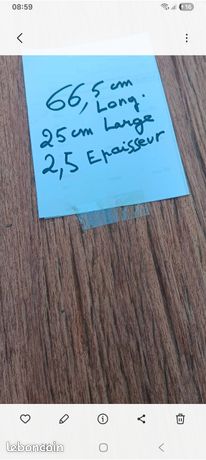 08:59
16
66,5 cm
Long.
25 cm Large
2,5 Epaisseur
leboncoin